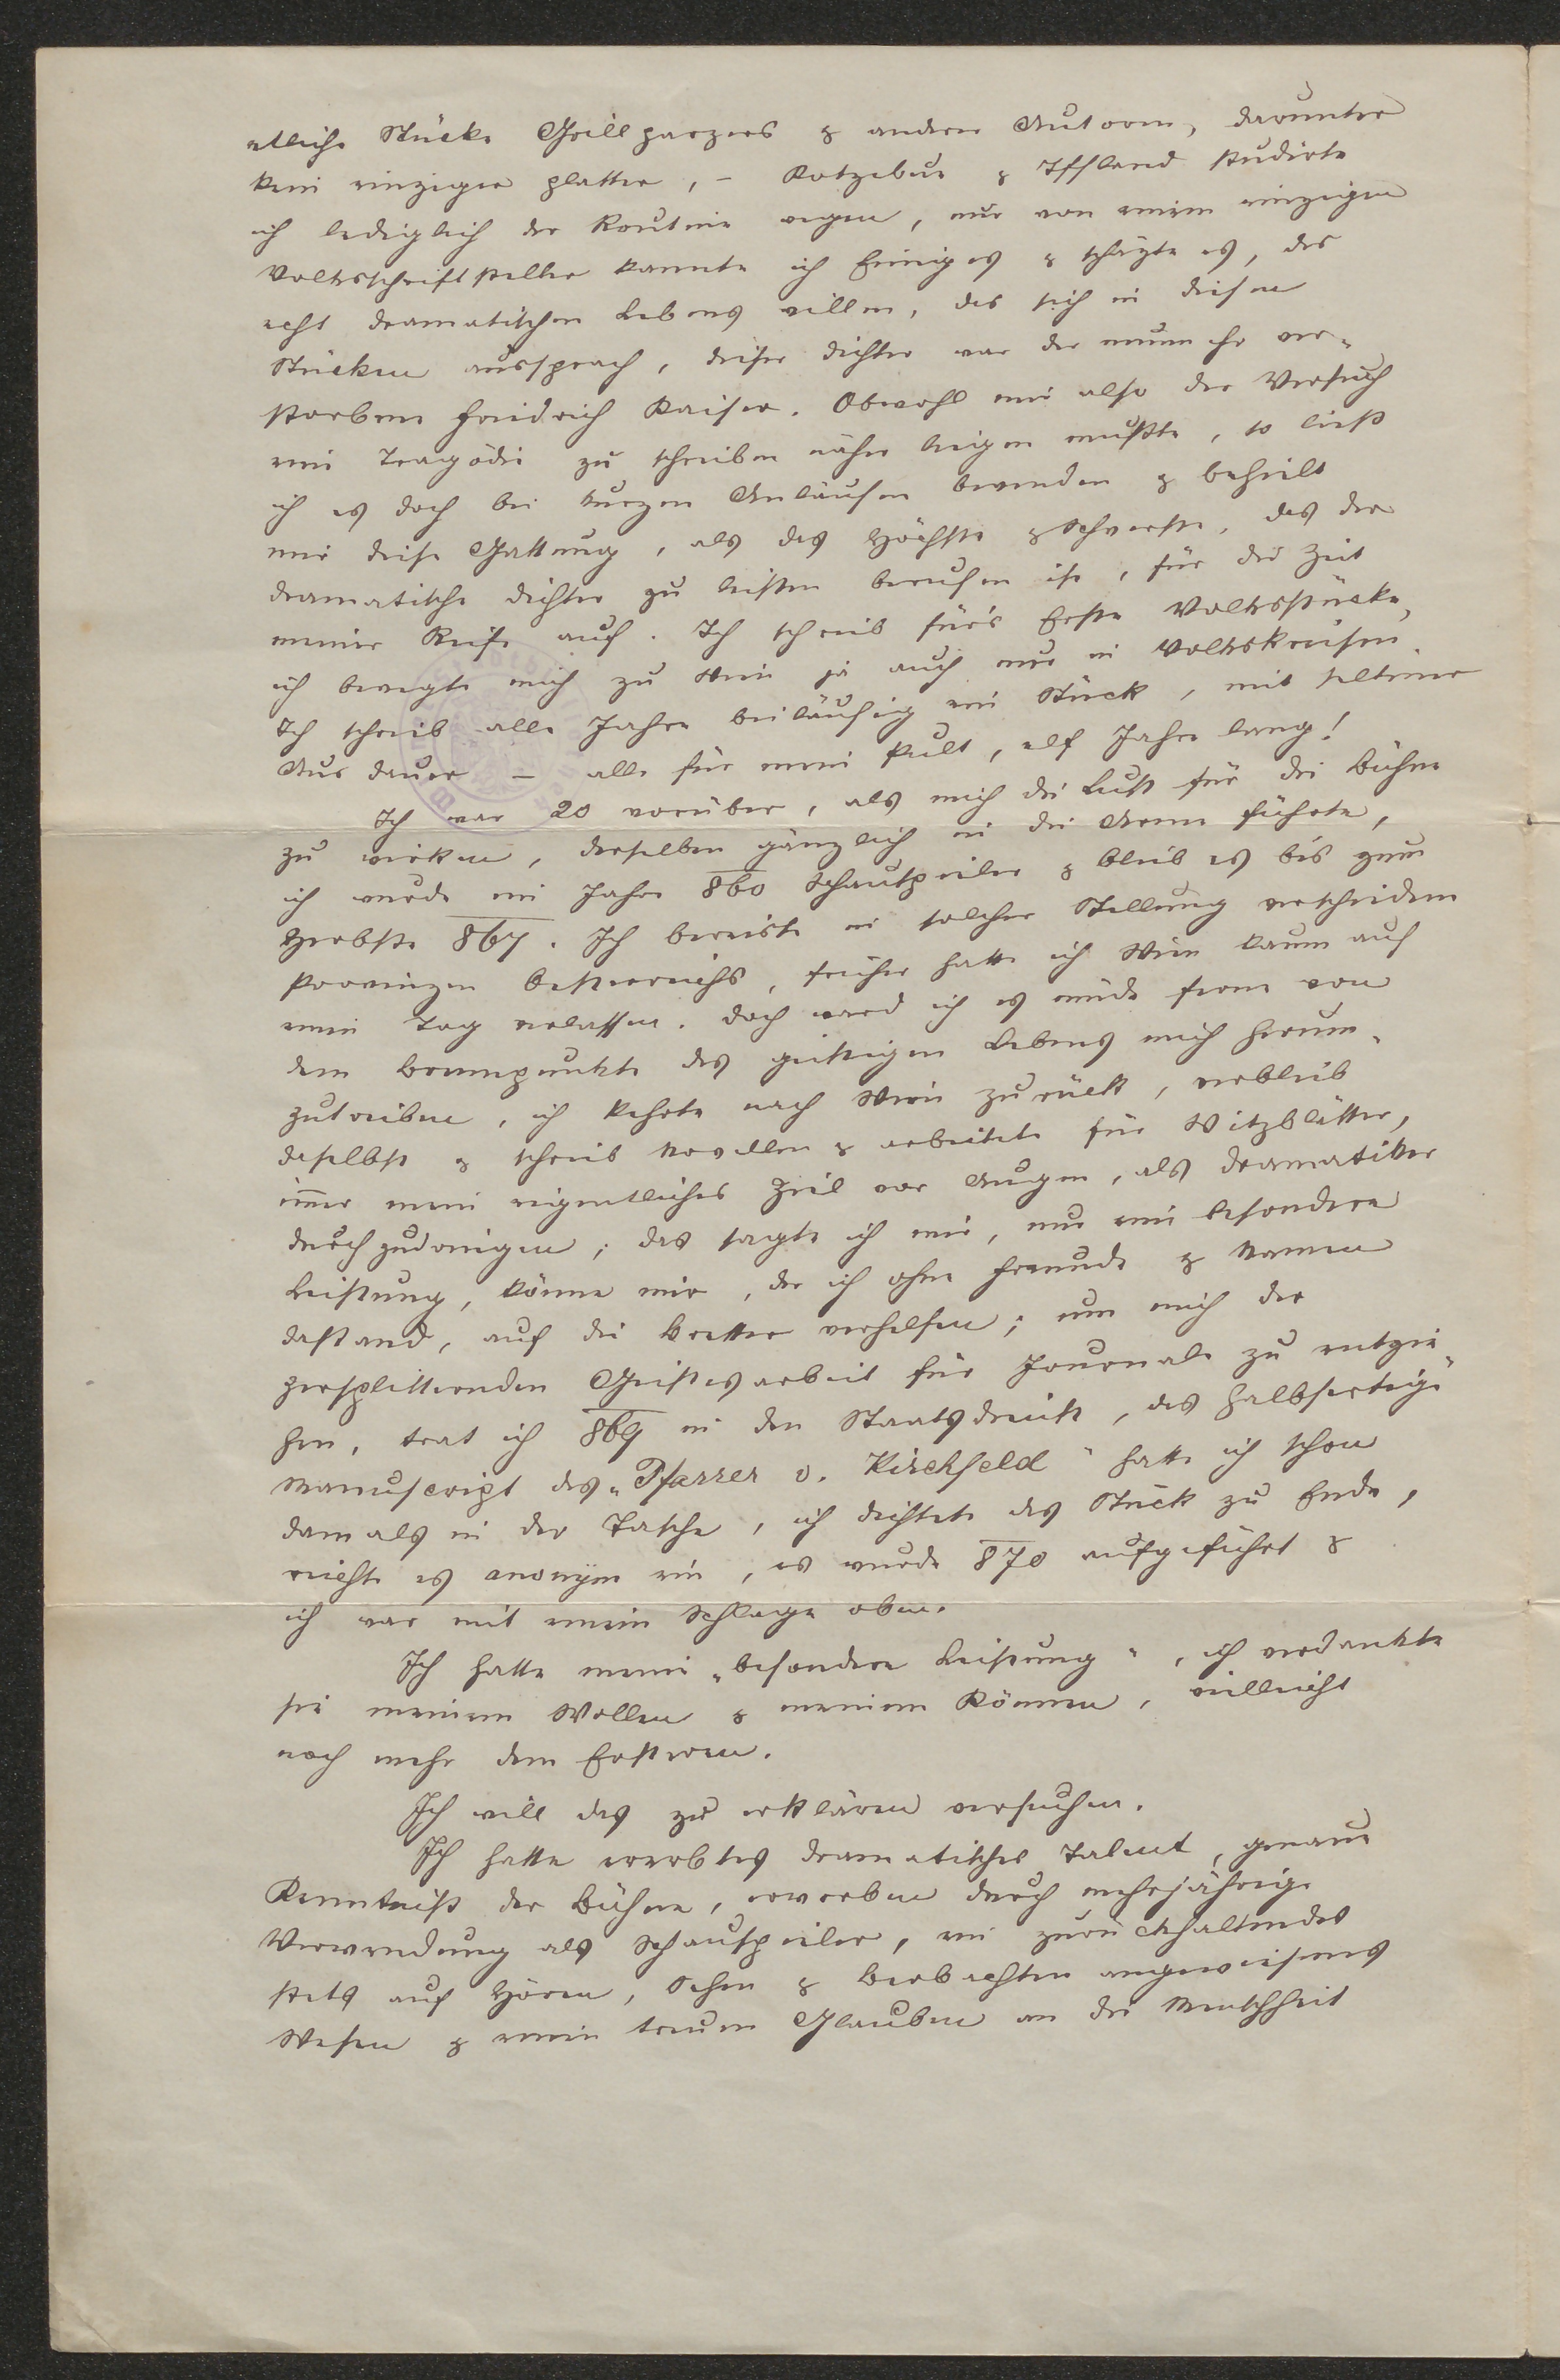 etliche Stücke Grillparzers & andere Autoren, darunter
kein einziger platter, – Kotzebue & Iffland studirte
ich lediglich der Routine wegen, nur von einem einzigen
Volksschriftsteller kannte ich Einiges & schäzte es, des
echt dramatischen Lebens willen, das sich in diesen
Stücken aussprach, dieser Dichter war der nunmehr ver-
storbene Friedrich Kaiser. Obwohl mir also der Versuch
eine Tragödie zu schreiben näher liegen mußte, so ließ
ich es doch bei kurzen Anläufen bewenden & behielt
mir diese Gattung, als das Höchste & Schwerste, das der
dramatische Dichter zu leisten berufen ist, für die Zeit
meiner Reife auf. Ich schrieb für's Erste Volksstücke,
ich bewegte mich zu Wien ja auch nur in Volkskreisen.
Ich schrieb alle Jahre beiläufig ein Stück, mit seltener
Ausdauer – alle für mein Pult, elf Jahre lang!
Ich war 20 vorüber, als mich die Lust für die Bühne
zu wirken, derselben gänzlich in die Arme führte,
ich wurde im Jahre 860 Schauspieler & blieb es bis zum
Herbste 867. Ich bereiste in solcher Stellung verschiedene
Provinzen Oesterreichs, früher hatte ich Wien kaum auf
einen Tag verlassen. Doch ward ich es müde ferne von
dem Brennpunkte des geistigen Lebens mich herum-
zutreiben, ich kehrte nach Wien zurück, verblieb
daselbst & schrieb Novellen & arbeitete für Witzblätter,
im̄er mein eigentliches Ziel vor Augen, als Dramatiker
durchzudringen; das sagte ich mir, nur eine besondere
Leistung, könne mir, der ich ohne Freunde & Namen
dastand, auf die Bretter verhelfen; um mich der
zersplitternden Geistesarbeit für Journale zu entzie-
hen, trat ich 869 in den Staatsdienst, das halbfertige
Manuscript des „Pfarrer v. Kirchfeld" hatte ich schon
damals in der Tasche, ich dichtete das Stück zu Ende,
reichte es anonym ein, es wurde 870 aufgeführt &
ich war mit einem Schlage oben.
Ich hatte meine „besondere Leistung", ich verdankte
sie meinem Wollen & meinem Können, vielleicht
noch mehr dem Ersteren.
Ich will das zu erklären versuchen.
Ich hatte ererbtes dramatisches Talent, genaue
Kenntniß der Bühne, erworben durch mehrjährige
Verwendung als Schauspieler, ein zurückhaltendes
stets auf Hören, Sehen & Beobachten angewiesenes
Wesen & einen treuen Glauben an die Menschheit